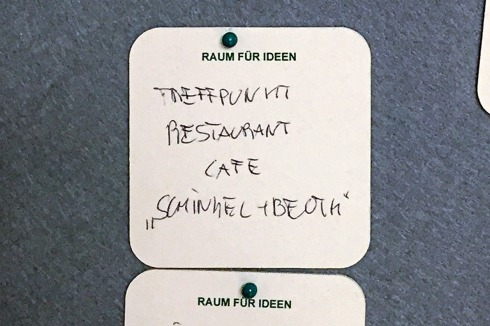 RAUM FÜR IDEEN
TREFFPUNKT
RESTAURANT
CAFE
„SCHINKEL + BEUTH“
RAUM FÜR IDEEN